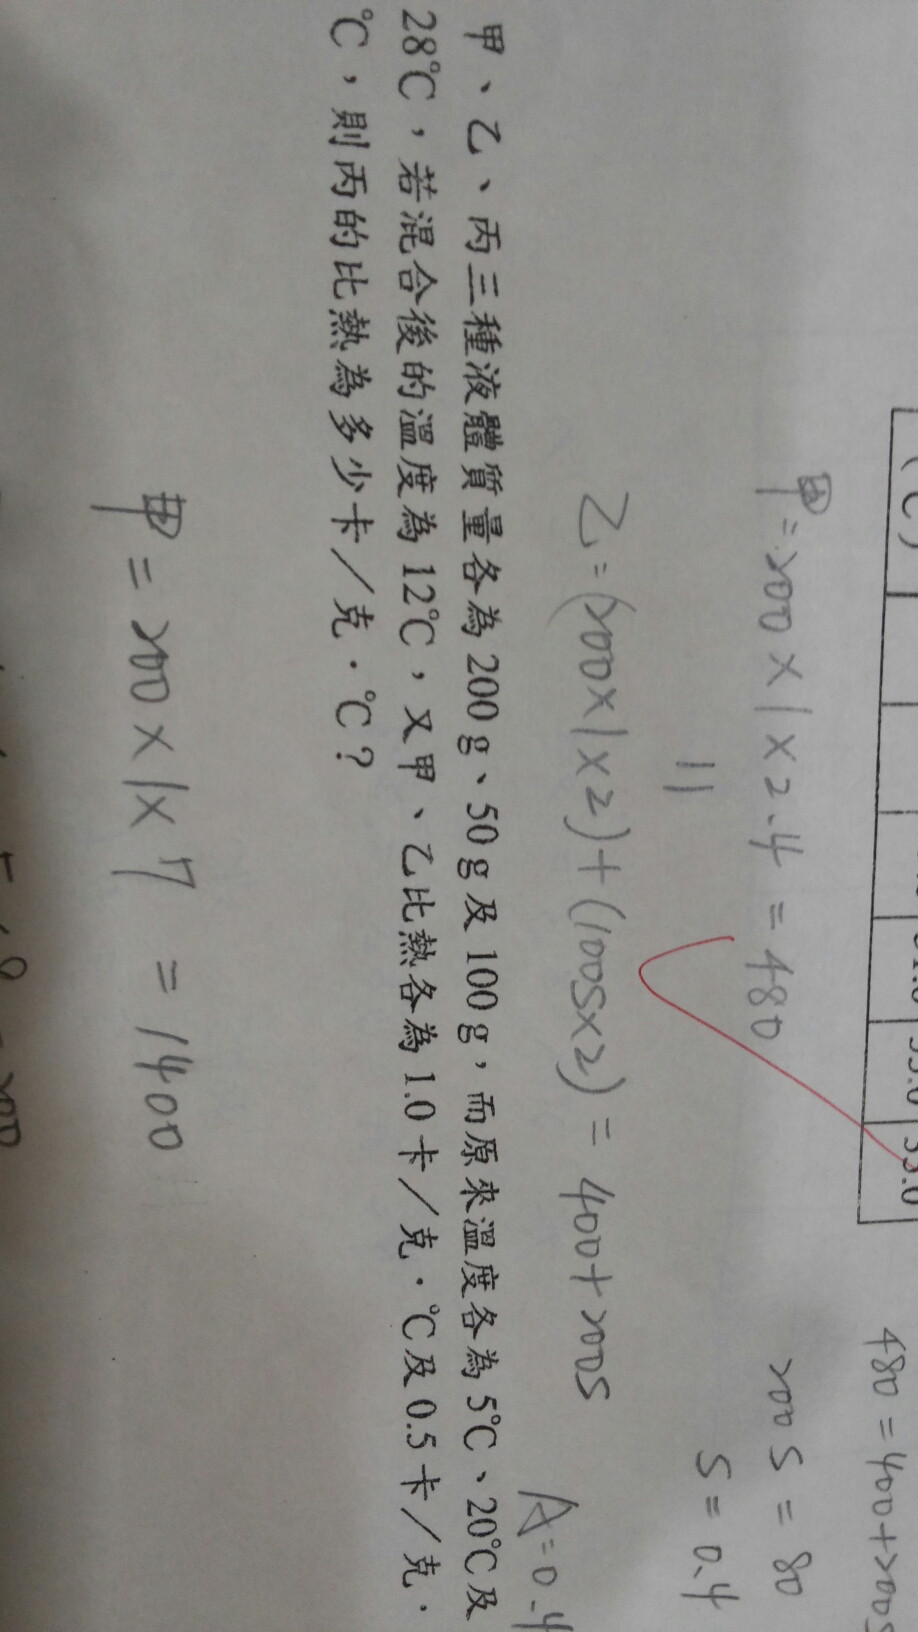 (℃)
33.0
甲=200×1×2.4=480
480=400+200S
200S=80
S=0.4
||
乙=(200×1×2)+(100S×2)=400+200S
A=0.4
甲、乙、丙三種液體質量各為200g、50g及100g,而原來溫度各為5℃、20℃及
28℃,若混合後的溫度為12℃,又甲、乙比熱各為1.0卡/克·℃及0.5卡/克·
℃,則丙的比熱為多少卡/克·℃?
甲=200×1×7=1400